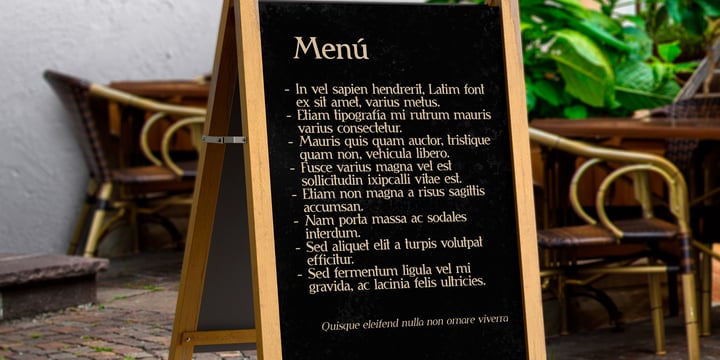 Menú
- In vel sapien hendrerit, Latim font
ex sit amet, varius metus.
- Etiam tipografia mi rutrum mauris
varius consectetur.
- Mauris quis quam auctor, tristique
quam non, vehicula libero.
- Fusce varius magna vel est
sollicitudin ixipcalli vitae est.
- Etiam non magna a risus sagittis
accumsan.
- Nam porta massa ac sodales
interdum.
- Sed aliquet elit a turpis volutpat
efficitur.
- Sed fermentum ligula vel mi
gravida, ac lacinia felis ultricies.
Quisque eleifend nulla non ornare viverra